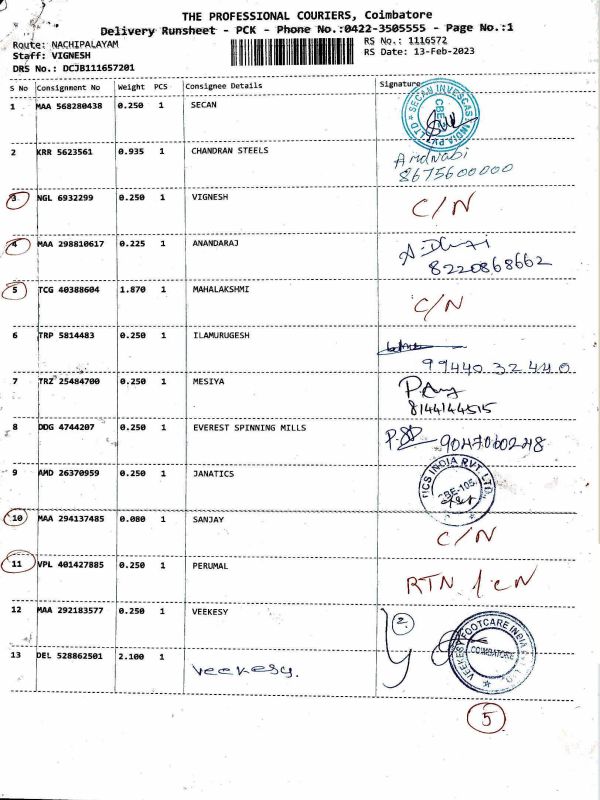 THE PROFESSIONAL COURIERS, Coimbatore
Delivery Runsheet - PCK - Phone No.:0422-3505555 - Page No.:1
Route: NACHIPALAYAM
RS No.: 1116572
Staff: VIGNESH
RS Date: 13-Feb-2023
DRS No.: DCJB111657201
S No Consignment No Weight PCS Consignee Details Signature
1 MAA 568280438 0.250 1 SECAN
SECAN INVESCAS INDIA PVT LTD CBE
2 KRR 5623561 0.935 1 CHANDRAN STEELS
8675600000
3 NGL 6932299 0.250 1 VIGNESH C/N
4 MAA 298810617 0.225 1 ANANDARAJ
8220868662
5 TCG 40388604 1.870 1 MAHALAKSHMI C/N
6 TRP 5814483 0.250 1 ILAMURUGESH
99440 32440
7 TRZ 25484700 0.250 1 MESIYA
8144144515
8 DDG 4744207 0.250 1 EVEREST SPINNING MILLS
9047060248
9 AMD 26370959 0.250 1 JANATICS
INDIA PVT. LTD. CBE-105
10 MAA 294137485 0.080 1 SANJAY C/N
11 VPL 401427885 0.250 1 PERUMAL RTN / CN
12 MAA 292183577 0.250 1 VEEKESY 2
VEEKESY FOOTCARE INDIA PVT LTD COIMBATORE
13 DEL 528862501 2.100 1 veekesy.
5